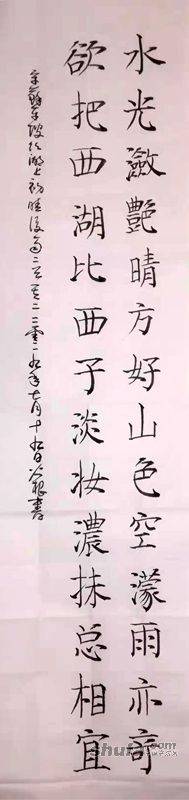 水光瀲艷晴方好山色空濛雨亦奇
欲把西湖比西子淡妆濃抹总相宜
宋蘇东坡饮湖上初晴後雨二首其二二零一九年七月十九日書